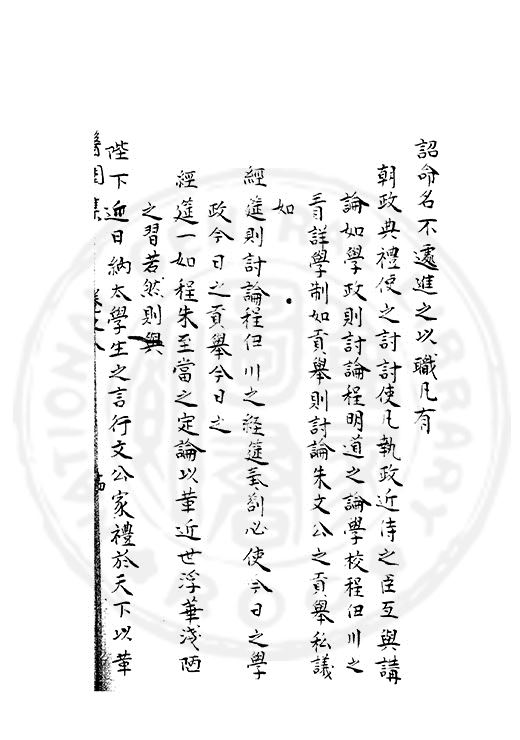 詔命名不遽進之以職凡有
朝政典禮使之討討使凡執政近侍之臣互與講
論如學政則討論程明道之論學校程伊川之
看詳學制如貢舉則討論朱文公之貢舉私議
如
經筵則討論程伊川之經筵奏劄必使今日之學
政今日之貢舉今日之
經筵一如程朱至當之定論以革近世浮華淺陋
之習若然則與
陛下近日納太學生之言行文公家禮於天下以革